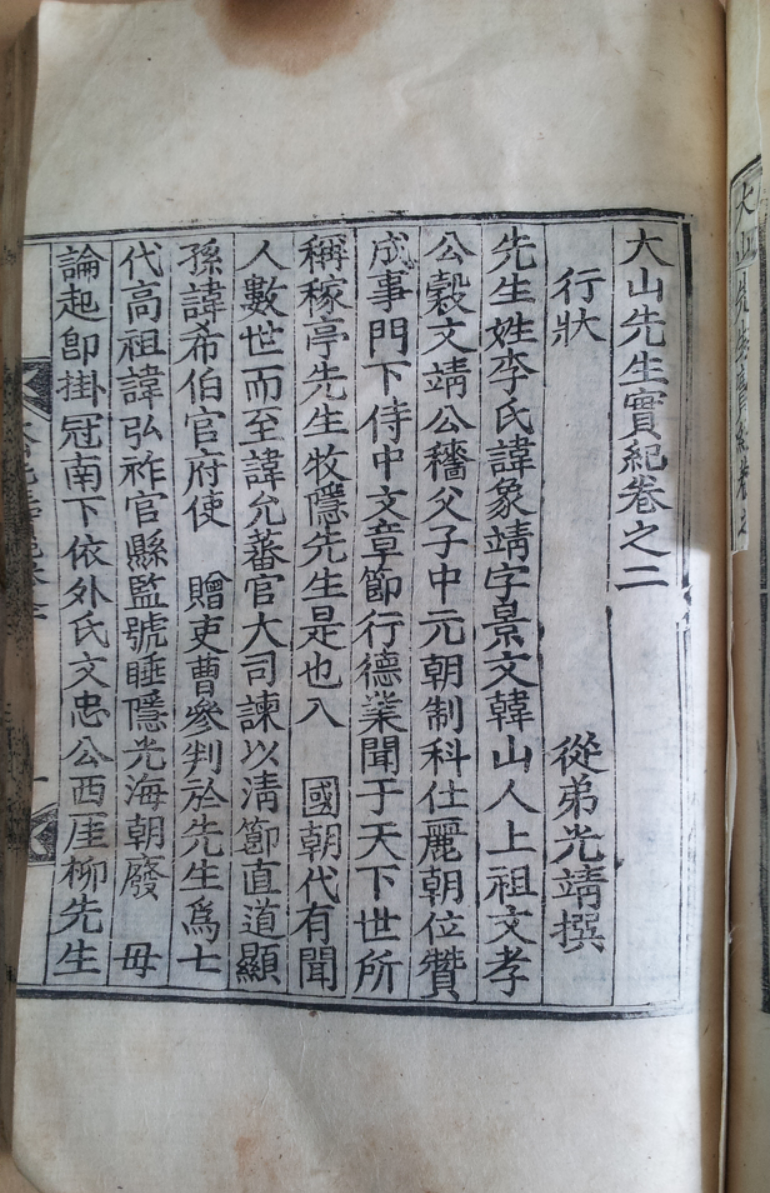 大山先生實紀卷之二
行狀 從弟光靖撰
先生姓李氏諱象靖字景文韓山人上祖文孝
公穀文靖公穡父子中元朝制科仕麗朝位贊
成事門下侍中文章節行德業聞于天下世所
稱稼亭先生牧隱先生是也入 國朝代有聞
人數世而至諱允蕃官大司諫以淸節直道顯
孫諱希伯官府使 贈吏曹參判於先生爲七
代高祖諱弘祚官縣監號睡隱光海朝廢 毋
論起卽掛冠南下依外氏文忠公西厓柳先生
大山先生實紀卷之